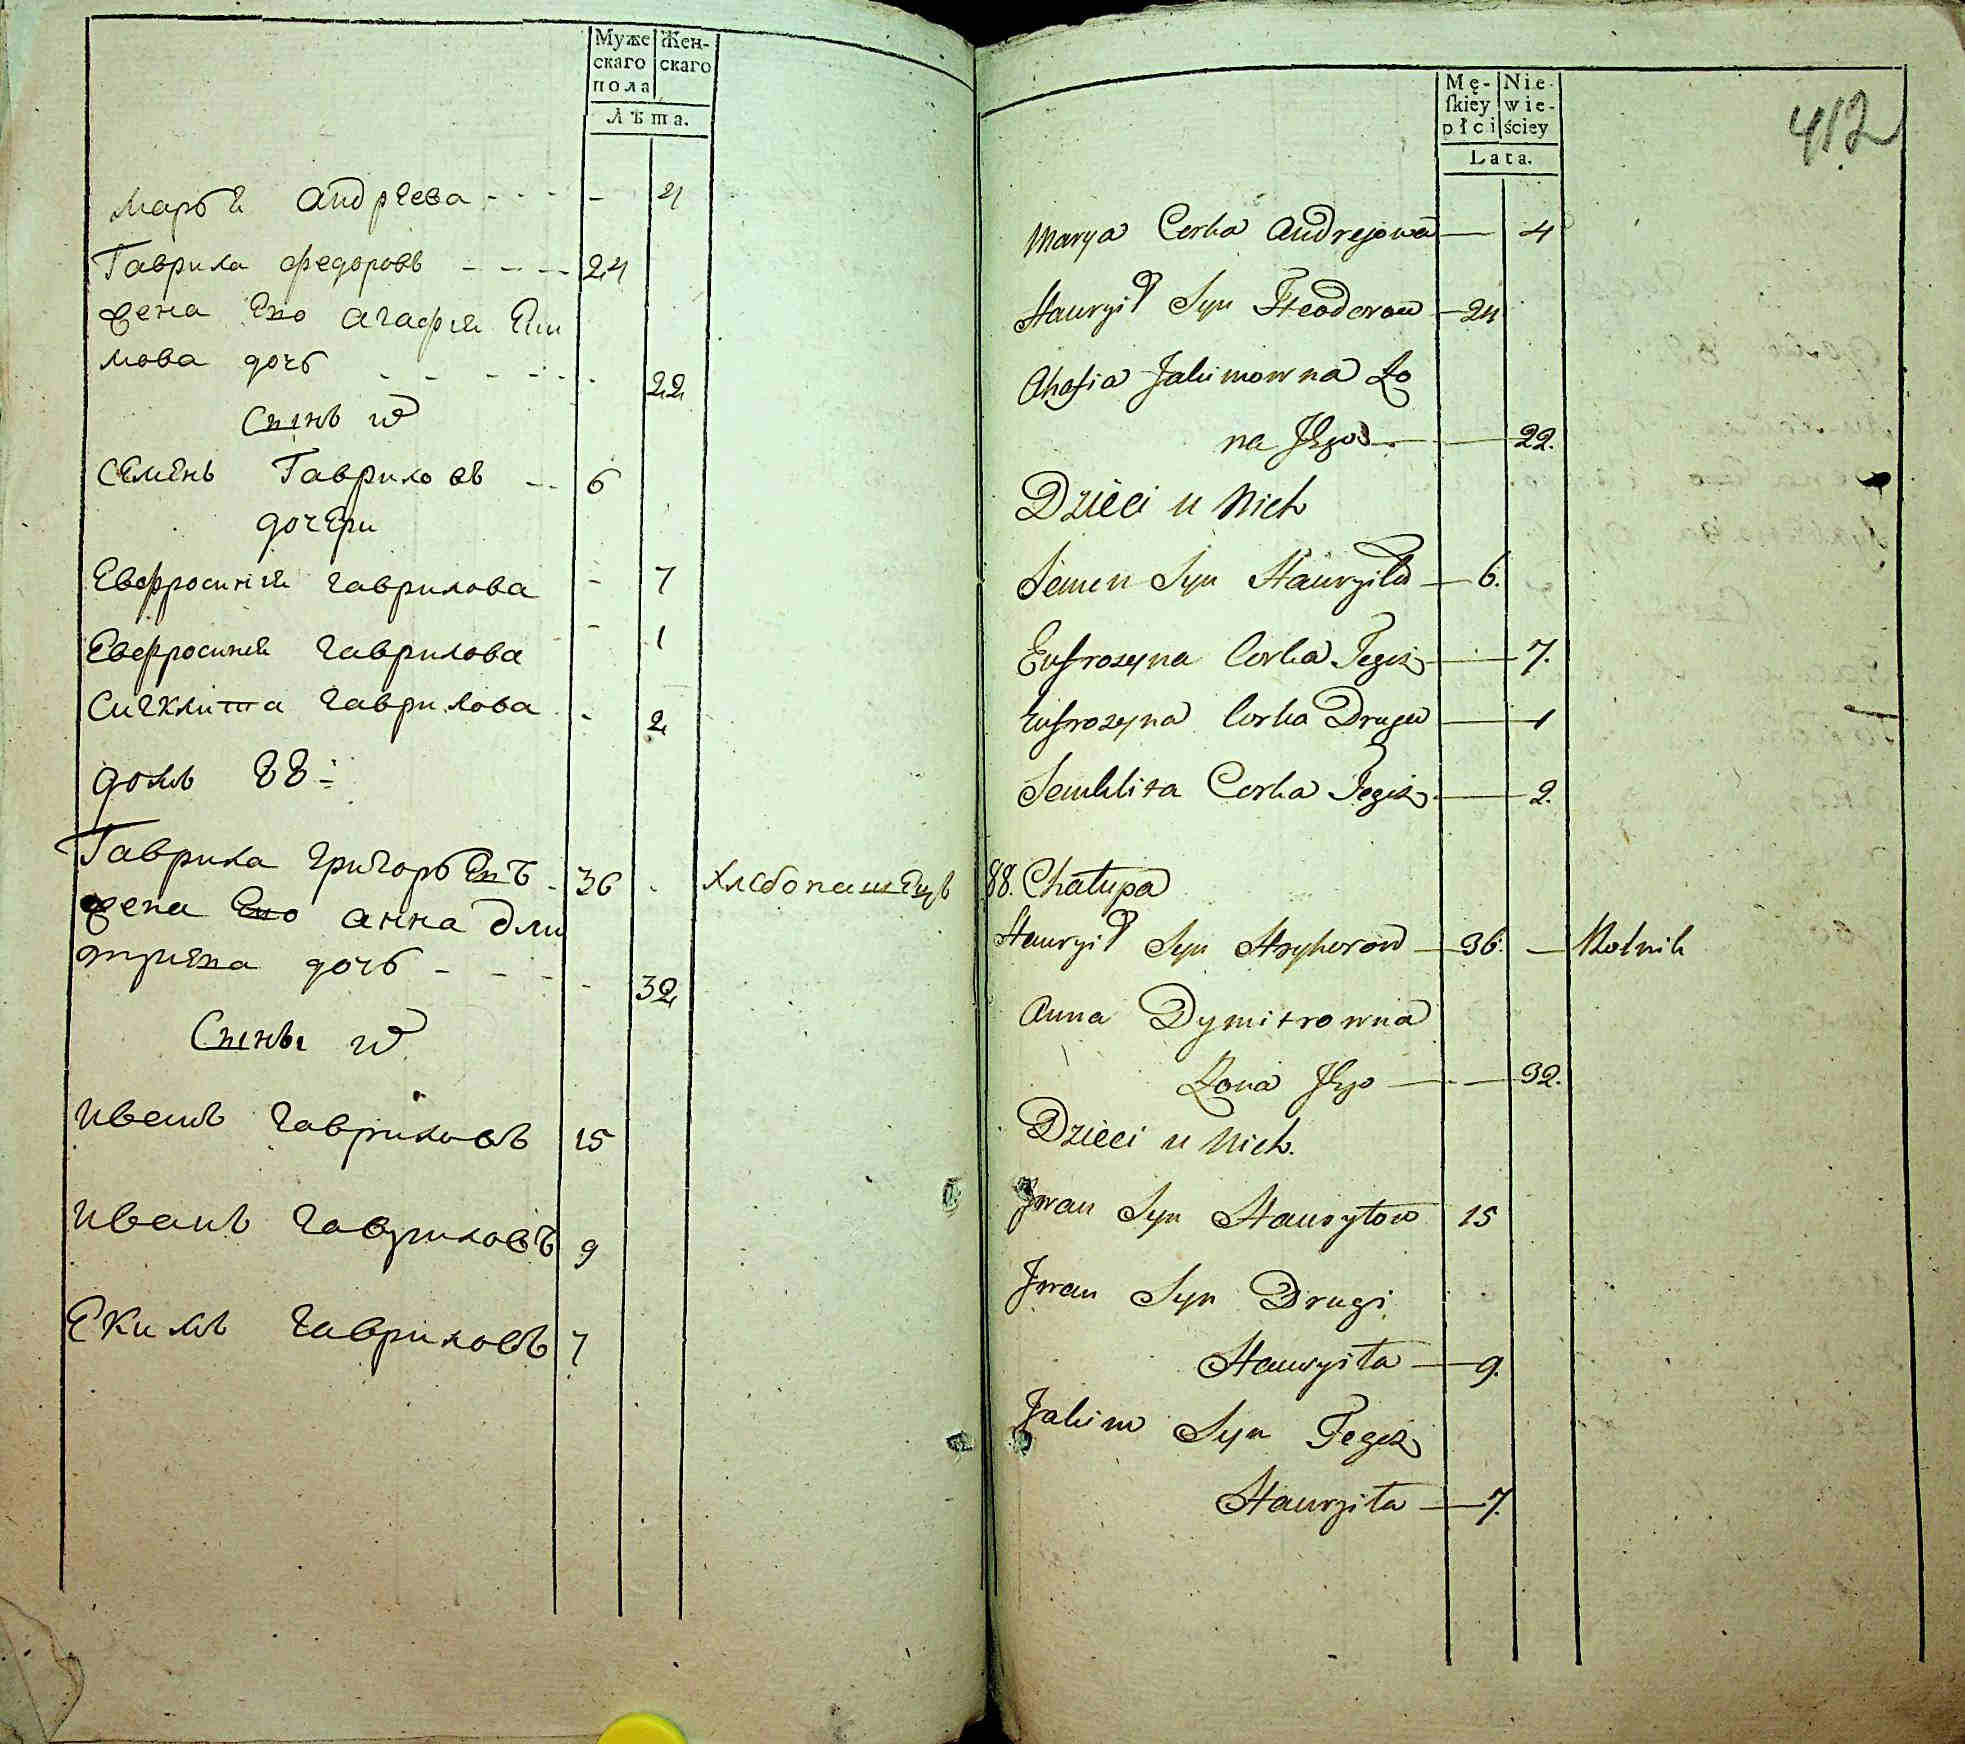 Муже Жен-
скаго скаго
пола
Лѣта.
Марья Андрѣева - - - - 4
Гаврила Федоровъ - - - - 24
Жена Ево Агафия Еки
мова дочь - - - - - 22
Сынъ
Семенъ Гавриловъ -- 6
дочери
Евфросиния Гаврилова - 7
Евфросиния Гаврилова - 1
Сигклита Гаврилова - 2
домъ 88
Гаврила Григорьевъ - 36 - хлебопашецъ
Жена Ево Анна Дми
триева дочь - - - - 32
Сыны
Иванъ Гавриловъ 15
Иванъ Гавриловъ 9
Екимъ Гавриловъ 7
412
Mę- Nie-
skiey wie-
płci ściey
Lata.
Marya Corka Andrejowa — 4
Hawryił Syn Fteodorow — 24
Ahafia Jakimowna Żo
na Jego — 22.
Dzieci u Nich
Semen Syn Hawryiła — 6.
Eufrozyna Corka Tegoż — 7.
Eufrozyna Corka Druga — 1
Senklita Corka Tegoż — 2.
88. Chałupa
Hawryił Syn Hryhorow — 36. — Rolnik
Anna Dymitrowna
Żona Jego — 32.
Dzieci u Nich.
Jwan Syn Hawryłow 15
Jwan Syn Drugi
Hawryiła — 9.
Jakim Syn Tegoż
Hawryiła — 7.